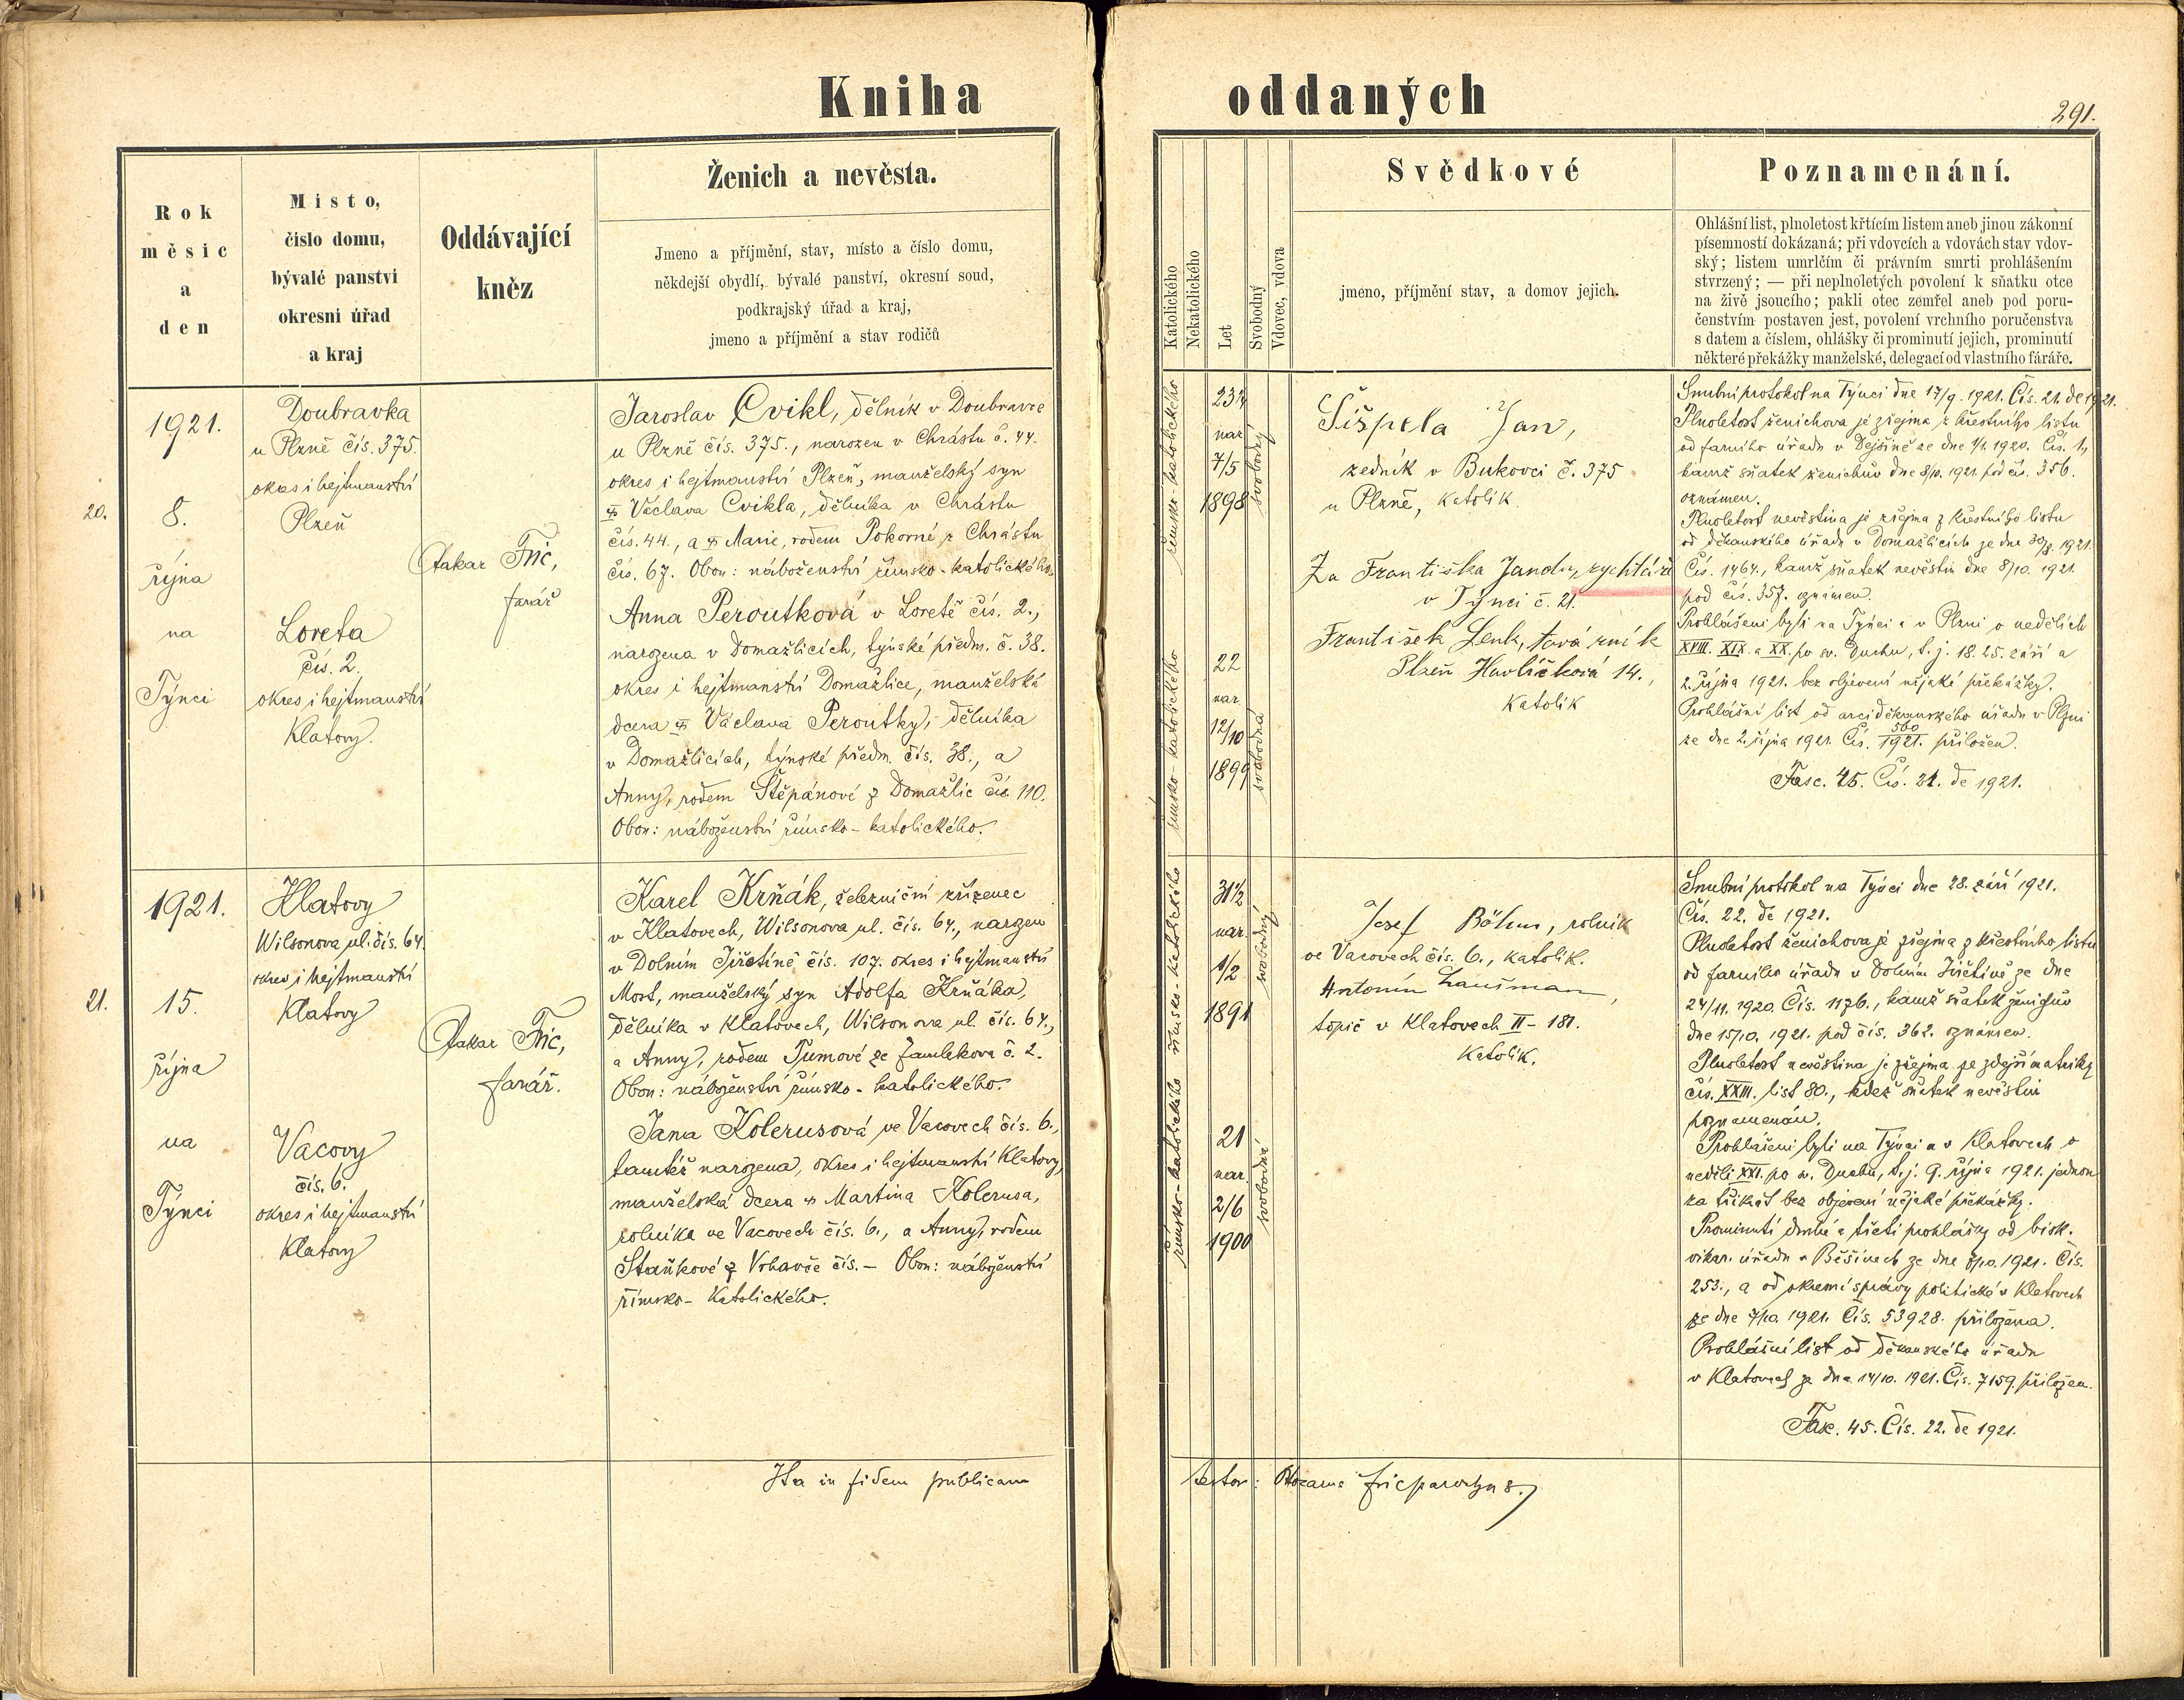 Kniha
oddaných
291.
Rok
měsíc
a
den
Místo,
číslo domu,
bývalé panství
okresní úřad
a kraj
Oddávající
kněz
Ženich a nevěsta.
Jmeno a příjmění, stav, místo a číslo domu,
někdejší obydlí, bývalé panství, okresní soud,
podkrajský úřad a kraj,
jmeno a příjmění a stav rodičů
Katolického
Nekatolického
Let
Svobodný
Vdovec, vdova
Svědkové
jmeno, příjmění stav, a domov jejich.
Poznamenání.
Ohlášní list, plnoletost křtícím listem aneb jinou zákonní
písemností dokázaná; při vdovcích a vdovách stav vdov-
ský; listem umrlčím či právním smrti prohlášením
stvrzený; — při neplnoletých povolení k sňatku otce
na živě jsoucího; pakli otec zemřel aneb pod poru-
čenstvím postaven jest, povolení vrchního poručenstva
s datem a číslem, ohlášky či prominutí jejich, prominutí
některé překážky manželské, delegací od vlastního fáráře.
20.
1921.
8.
října
na
Týnci
Doubravka
u Plzně čís. 375.
okres i hejtmanství
Plzeň
Loreta
čís. 2.
okres i hejtmanství
Klatovy.
Otakar Fric,
farář
Jaroslav Cvikl, dělník v Doubravce
u Plzně čís. 375., narozen v Chrástu č. 44.
okres i hejtmanství Plzeň, manželský syn
Václava Cvikla, dělníka v Chrástu
čís. 44., a Marie, rodem Pokorné z Chrástu
čís. 67. Obou: náboženství římsko-katolického.
Anna Peroutková v Loretě čís. 2.,
narozena v Domažlicích, týnské předm. č. 38.
okres i hejtmanství Domažlice, manželská
dcera Václava Peroutky, dělníka
v Domažlicích, týnské předm. čís. 38., a
Anny, rodem Štěpánové z Domažlic čís. 110.
Obou: náboženství římsko-katolického.
římsko-katolického
23¼
nar.
7/5
1898
svobodný
římsko-katolického
22
nar.
12/10
1899
svobodná
Šišpela Jan,
zedník v Bukovci č. 375
u Plzně, katolík.
Za Františka Jandu, rychtáře
v Týnci č. 21.
František Lenk, továrník
Plzeň Havlíčková 14.,
katolík
Snubní protokol na Týnci dne 17/9. 1921. Čís. 21. de 1921.
Plnoletost ženichova je zřejma z křestního listu
od farního úřadu v Dejšině ze dne 1/1. 1920. Čís. 1.,
kamž sňatek ženichův dne 8/10. 1921. pod čís. 356.
oznámen.
Plnoletost nevěstina je zřejma z křestního listu
od děkanského úřadu v Domažlicích ze dne 30/8. 1921.
Čís. 1464., kamž sňatek nevěstin dne 8/10. 1921.
pod čís. 357. oznámen.
Prohlášeni byli na Týnci a v Plzni o nedělích
XVIII. XIX. a XX. po sv. Duchu, t. j. 18. 25. září a
2. října 1921. bez objevení nějaké překážky.
Prohlášní list od arciděkanského úřadu v Plzni
ze dne 2. října 1921. Čís. 560/1921. přiložen.
Fasc. 45. Čís. 21. de 1921.
21.
1921.
15.
října
na
Týnci
Klatovy
Wilsonova ul. čís. 64.
okres i hejtmanství
Klatovy
Vacovy
čís. 6.
okres i hejtmanství
Klatovy
Otakar Fric,
farář.
Karel Krňák, železniční zřízenec
v Klatovech, Wilsonova ul. čís. 64., narozen
v Dolním Jiřetíně čís. 107. okres i hejtmanství
Most, manželský syn Adolfa Krňáka,
dělníka v Klatovech, Wilsonova ul. čís. 64.,
a Anny, rodem Tůmové ze Žamlekova č. 2.
Obou: náboženství římsko-katolického.
Jana Kolerusová ve Vacovech čís. 6.,
tamtéž narozena, okres i hejtmanství Klatovy,
manželská dcera Martina Kolerusa,
rolníka ve Vacovech čís. 6., a Anny, rodem
Staňkové z Vrhavče čís. — Obou: náboženství
římsko-katolického.
římsko-katolického
31½
nar.
1/2
1891
svobodný
římsko-katolického
21
nar.
2/6
1900
svobodná
Josef Böhm, rolník
ve Vacovech čís. 6., katolík.
Antonín Laušman,
topič v Klatovech II - 181.
Katolík.
Snubní protokol na Týnci dne 28. září 1921.
Čís. 22. de 1921.
Plnoletost ženichova je zřejma z křestního listu
od farního úřadu v Dolním Jiřetíně ze dne
24/11. 1920. Čís. 1176., kamž sňatek ženichův
dne 15/10. 1921. pod čís. 362. oznámen.
Plnoletost nevěstina je zřejma ze zdejší matriky
čís. XXIII. list 80., kdež sňatek nevěstin
poznamenán.
Prohlášeni byli na Týnci a v Klatovech o
neděli XXI. po sv. Duchu, t. j. 9. října 1921. jednou
za třikrát bez objevení nějaké překážky.
Prominutí druhé a třetí prohlášky od bisk.
vikar. úřadu v Běšinech ze dne 1921. Čís.
253., a od okresní správy politické v Klatovech
ze dne 7/10. 1921. Čís. 53928. přiložena.
Prohlášní list od děkanského úřadu
v Klatovech ze dne 14/10. 1921. Čís. 7159. přiložen.
Fasc. 45. Čís. 22. de 1921.
Ita in fidem publicam
testor: Fric parochus.